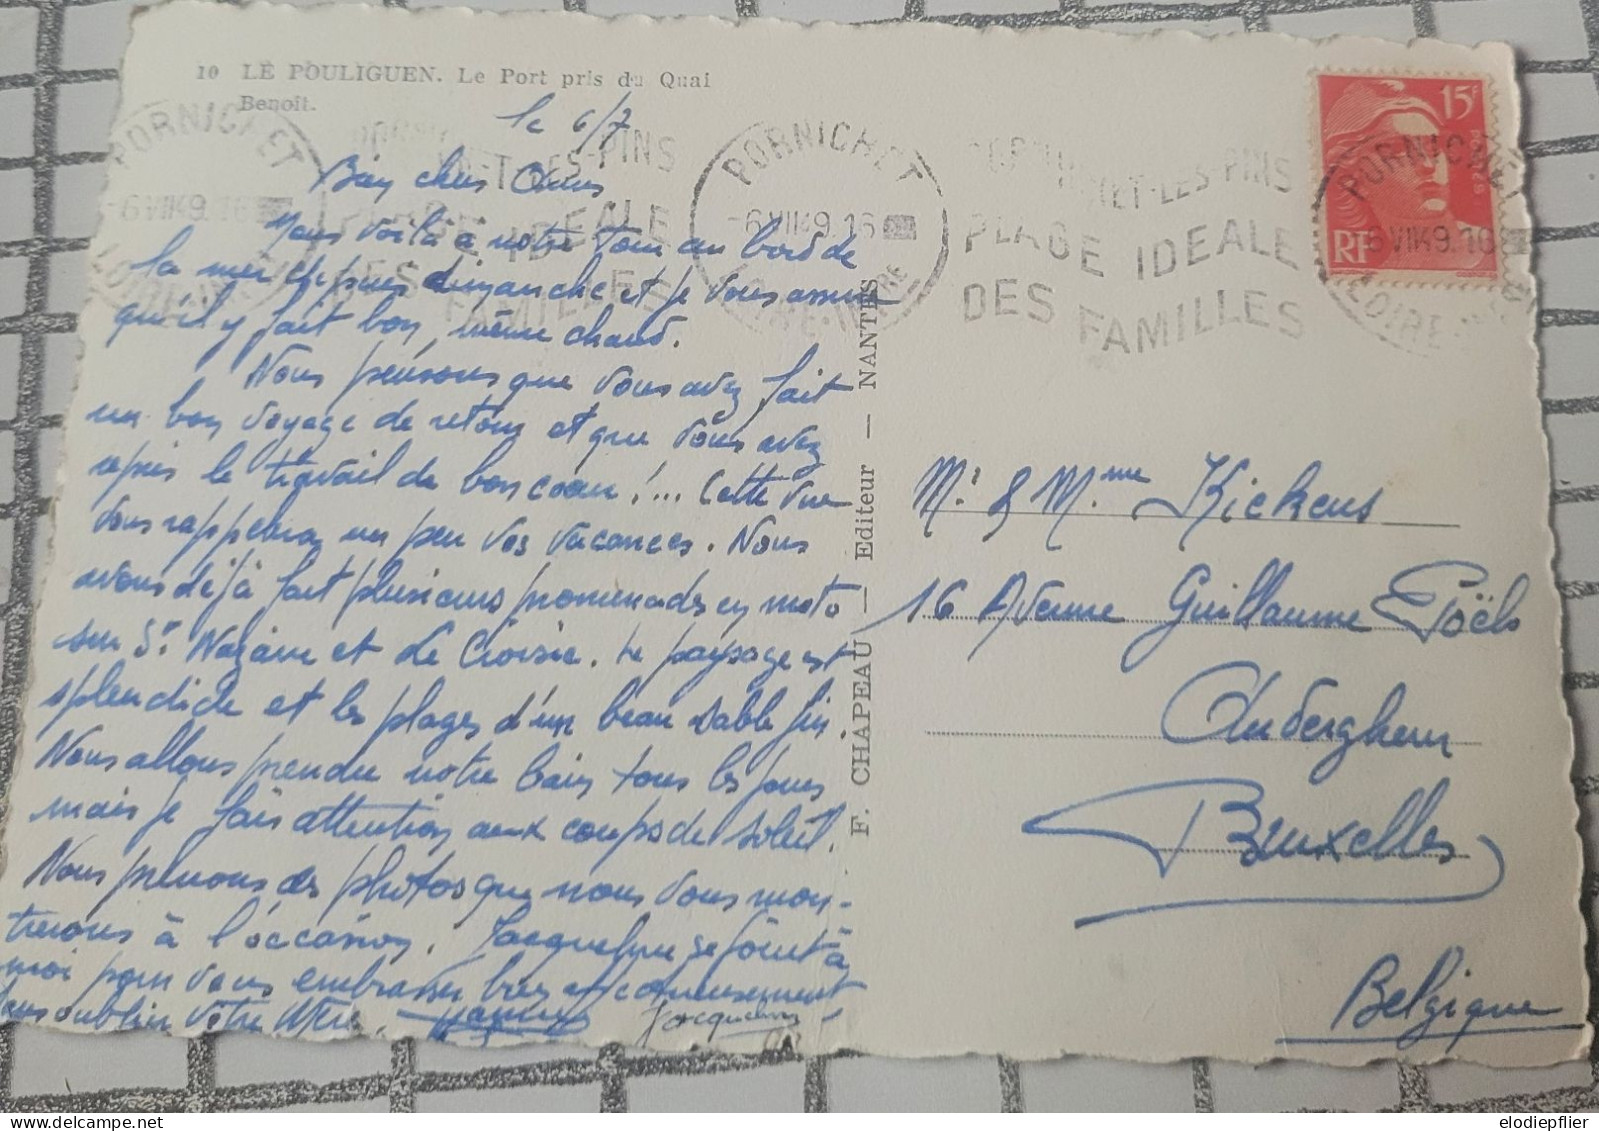 10 LE POULIGUEN. Le Port pris du Quai
Benoît.
le 6/7
Bien chers Omer
Nous voilà à notre tour au bord de
la mer depuis dimanche et je vous assure
qu'il y fait bon, même chaud.
Nous pensons que vous avez fait
un bon voyage de retour et que vous avez
repris le travail de bon coeur !... Cette vue
vous rappelera un peu vos vacances. Nous
avons déjà fait plusieurs promenades en moto
sur St Nazaire et Le Croisic. Le paysage est
splendide et les plages d'un beau sable fin.
Nous allons prendre notre bain tous les jours
mais je fais attention aux coups de soleil.
Nous prenons des photos que nous vous mon-
trerons à l'occasion. Jacqueline se joint à
moi pour vous embrasser bien affectueusement
sans oublier votre Mère. Jacqueline
F. CHAPEAU — Editeur — NANTES
PORNICHET
-6 VII 49. 16
LOIRE-INFRE
PORNICHET-LES-PINS
PLAGE IDEALE
DES FAMILLES
15F
POSTES
RF
Mr & Mme Kickens
16 Avenue Guillaume Poëls
Auderghem
Bruxelles
Belgique
elodiepflier